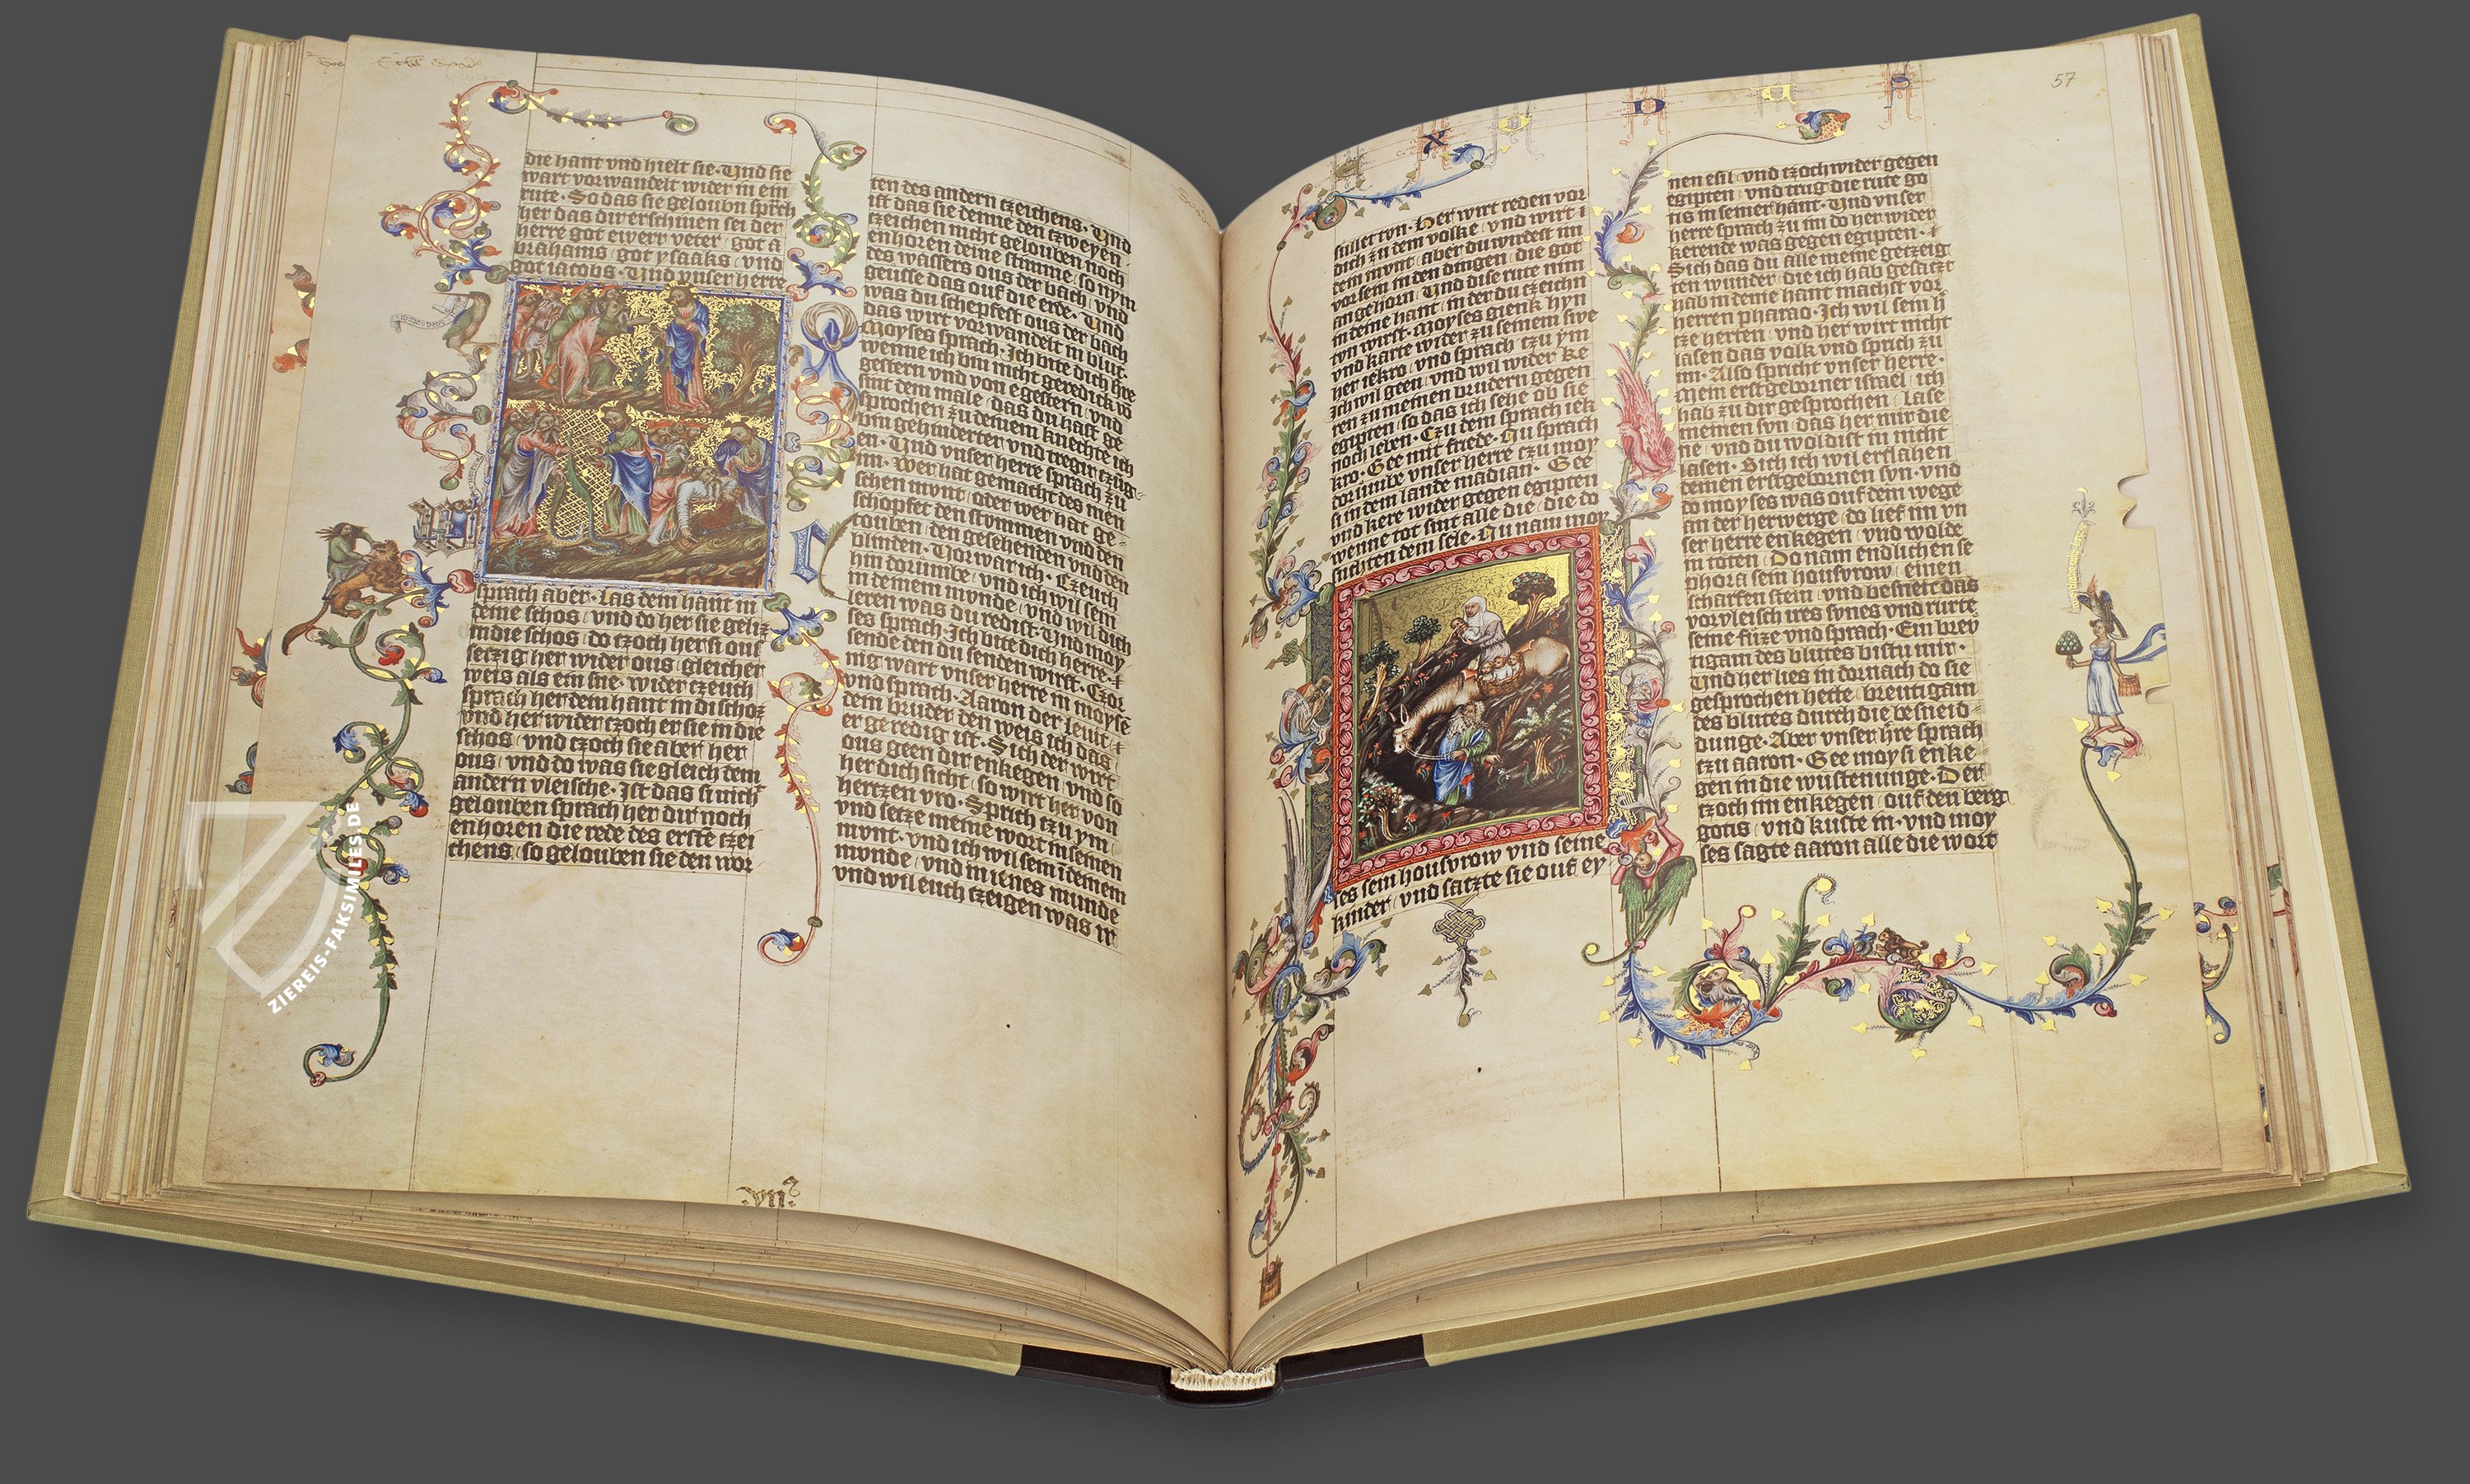 57
die hant vnd hielt sie. Vnd sie
wart vorwandelt wider in ein
rute. So das sie geloubn sprch
her das dir erschinen sei der
herre got ewerr veter got a
brahams got ysaaks vnd
got iacobs. Vnd vnser herre
sprach aber. Las dein hant in
deine schos vnd do her sie
in die schos do tzoch her si ous
her wider ous gleicher
weis als ein sne. wider tzeuch
sprach her dein hant in di schoz
vnd her wider tzoch er sie in die
schos vnd tzoch sie aber her
ous vnd do was sie gleich dem
andern vleische. Ist das si nich
gelouben sprach her dir noch
enhoren die rede des erste tzei
chens so gelouben sie den wor
ten des andern tzeichens. Vnd
ist das sie denne den tzweyen
tzeichen nicht gelouben noch
enhoren deine stimme so nym
des wassers ous der bach vnd
geusse das ouf die erde. Vnd
was du schepfest ous der bach
das wirt vorwandelt in blut.
Moyses sprach. Ich bite dich hre
wenne ich bin nicht geredick vo
gestern vnd von egestern vnd
sint dem male das du hast ge
sprochen zu deinem knechte ich
bin gehinderter vnd tregir tzûg
en. Vnd vnser herre sprach zu
im. Wer hat gemacht des men
schen mvnt oder wer hat ge
schopfet den stvmmen vnd den
touben den gesehenden vnd den
blinden. Vor war ich. Tzeuch
hin dorumbe vnd ich wil sein
in deinem mvnde vnd wil dich
leren was du redist. Vnd moy
ses sprach Ich bite dich herre
sende den du senden wirst. Czor
nig wart vnser herre in moyse
vnd sprach. Aaron der leuit
dein bruder den weis ich das
er geredig ist. Sich der wirt
ous geen dir enkegen vnd so
her dich sicht so wirt her von
hertzen vro. Sprich tzu ym
vnd setze meine wort in seinen
mvnt. vnd ich wil sein i deinem
mvnde vnd in ienes munde
vnd wil euch tzeigen was ir
sullet tvn. Her wirt reden vor
dich zu dem volke vnd wirt i
dein mvnt aber du wirdest im
vor sein in den dingen die got
an gehorn. Vnd dise rute nim
in deine hant in der du tzeichn
tvn wirst. Moyses gienk hyn
vnd karte wider zu seinem swe
her iekro vnd sprach tzu ym
Ich wil geen vnd wil wider ke
ren zu meinen brudern gegen
egipten so das ich sehe ob sie
noch leben. Czu dem sprach iek
kro. Gee mit frede. Nu sprach
dorumbe vnser herre tzu moy
si in dem lande madian. Gee
vnd kere wider gegen egipten
wenne tot sint alle die die do
suchten dein sele. Nu nam moy
ses sein housvrow vnd seine
kinder vnd satzte sie ouf ey
nen esil vnd tzoch wider gegen
egipten vnd trug die rute go
tis in seiner hant. Vnd vnser
herre sprach zu im do her wider
kerende was gegen egipten.
Sich das du alle meine getzeig
ten wunder die ich hab gesatzt
hab in deine hant machst vor
herren pharao. Ich wil sein h
tze herten vnd her wirt nicht
lasen das volk vnd sprich zu
im. Also spricht vnser herre.
Mein erstgeborner israel ich
hab zu dir gesprochen lase
meinen svn das her mir die
ne vnd du woldist in nicht
lasen. Sich ich wil erslahen
deinen erstgebornen svn. vnd
do moyses was ouf dem wege
an der herwerge do lief im vn
ser herre enkegen vnd wolde
in toten. Do nam endlichen se
phora sein housvrow einen
scharfen stein vnd besneit das
vorvleisch ires synes vnd rurte
seine fuze vnd sprach. Ein brev
tigam des blutes bistu mir.
Vnd her lies in dornach do sie
gesprochen hette breutigam
des blutes durch die besneid
dunge. Aber vnser hre sprach
tzu aaron. Gee moysi enke
gen in die wustenunge. Der
tzoch im enkegen ouf den berg
gotis vnd kuste in. vnd moy
ses sagte aaron alle die wort
ZIEREIS-FAKSIMILES.DE